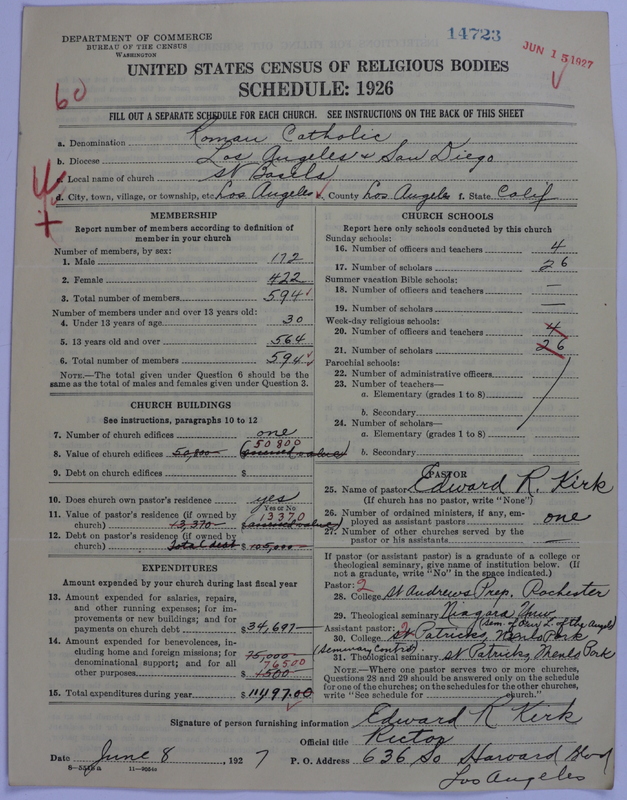 DEPARTMENT OF COMMERCE
BUREAU OF THE CENSUS
WASHINGTON
14723
JUN 15 1927
UNITED STATES CENSUS OF RELIGIOUS BODIES
SCHEDULE: 1926
60
FILL OUT A SEPARATE SCHEDULE FOR EACH CHURCH. SEE INSTRUCTIONS ON THE BACK OF THIS SHEET
a. Denomination Roman Catholic
b. Diocese Los Angeles & San Diego
c. Local name of church St Basils
d. City, town, village, or township, etc. Los Angeles County Los Angeles f. State Calif
MEMBERSHIP
Report number of members according to definition of
member in your church
Number of members, by sex:
1. Male 172
2. Female 422
3. Total number of members 594
Number of members under and over 13 years old:
4. Under 13 years of age 30
5. 13 years old and over 564
6. Total number of members 594
NOTE.—The total given under Question 6 should be the
same as the total of males and females given under Question 3.
CHURCH BUILDINGS
See instructions, paragraphs 10 to 12
7. Number of church edifices one
50800
8. Value of church edifices 50,800 (assessed value)
9. Debt on church edifices $
10. Does church own pastor's residence yes
Yes or No
11. Value of pastor's residence (if owned by 13370
church) 13,370 (assessed value)
12. Debt on pastor's residence (if owned by
church) Total debt $ 105,000
EXPENDITURES
Amount expended by your church during last fiscal year
13. Amount expended for salaries, repairs,
and other running expenses; for im-
provements or new buildings; and for
payments on church debt $34,697
14. Amount expended for benevolences, in-
cluding home and foreign missions; for 75,000 (Seminary Contrib.)
denominational support; and for all 76500
other purposes $ 1500
15. Total expenditures during year $111497.00
CHURCH SCHOOLS
Report here only schools conducted by this church
Sunday schools:
16. Number of officers and teachers 4
17. Number of scholars 26
Summer vacation Bible schools:
18. Number of officers and teachers —
19. Number of scholars —
Week-day religious schools:
20. Number of officers and teachers 4
21. Number of scholars 26
Parochial schools:
22. Number of administrative officers
23. Number of teachers—
a. Elementary (grades 1 to 8)
b. Secondary
24. Number of scholars—
a. Elementary (grades 1 to 8)
b. Secondary
PASTOR
25. Name of pastor Edward R. Kirk
(If church has no pastor, write "None")
26. Number of ordained ministers, if any, em-
ployed as assistant pastors one
27. Number of other churches served by the
pastor or his assistants —
If pastor (or assistant pastor) is a graduate of a college or
theological seminary, give name of institution below. (If
not a graduate, write "No" in the space indicated.)
Pastor: 2
28. College St Andrews Prep. Rochester
29. Theological seminary Niagara Univ.
Assistant pastor: 2
30. College St Patricks, Menlo Park
31. Theological seminary St Patricks, Menlo Park
NOTE.—Where one pastor serves two or more churches,
Questions 28 and 29 should be answered only on the schedule
for one of the churches; on the schedules for the other churches,
write "See schedule for church."
Signature of person furnishing information Edward R Kirk
Official title Rector
Date June 8, 1927 P. O. Address 636 So Harvard Blvd
Los Angeles
8-5516a 11-9054a